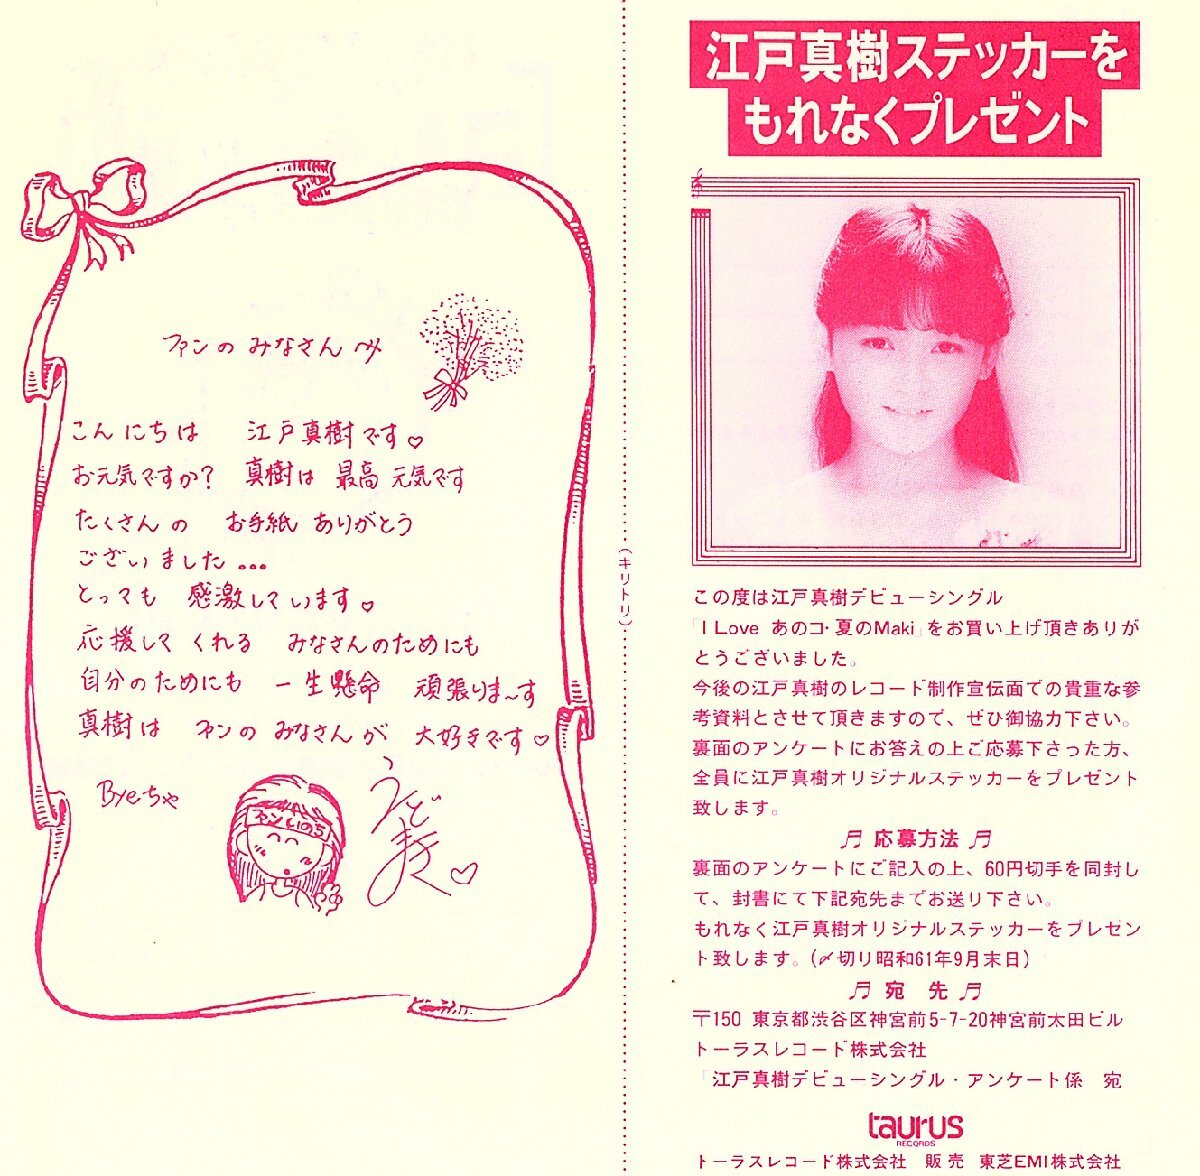 ファンの みなさんへ
こんにちは 江戸真樹です♡
お元気ですか? 真樹は 最高 元気です
たくさんの お手紙 ありがとう
ございました...
とっても 感激しています♡
応援して くれる みなさんのためにも
自分のためにも 一生懸命 頑張りま〜す
真樹は ファンの みなさんが 大好きです♡
Bye-ちゃ
ファンいのち
えど
まき♡
(キリトリ)
江戸真樹ステッカーを
もれなくプレゼント
この度は江戸真樹デビューシングル
「I Love あのコ・夏のMaki」をお買い上げ頂きありが
とうございました。
今後の江戸真樹のレコード制作宣伝面での貴重な参
考資料とさせて頂きますので、ぜひ御協力下さい。
裏面のアンケートにお答えの上ご応募下さった方、
全員に江戸真樹オリジナルステッカーをプレゼント
致します。
♬ 応募方法 ♬
裏面のアンケートにご記入の上、60円切手を同封し
て、封書にて下記宛先までお送り下さい。
もれなく江戸真樹オリジナルステッカーをプレゼン
ト致します。(〆切り昭和61年9月末日)
♬ 宛 先 ♬
〒150 東京都渋谷区神宮前5-7-20神宮前太田ビル
トーラスレコード株式会社
「江戸真樹デビューシングル・アンケート係 宛
taurus
RECORDS
トーラスレコード株式会社 販売 東芝EMI株式会社